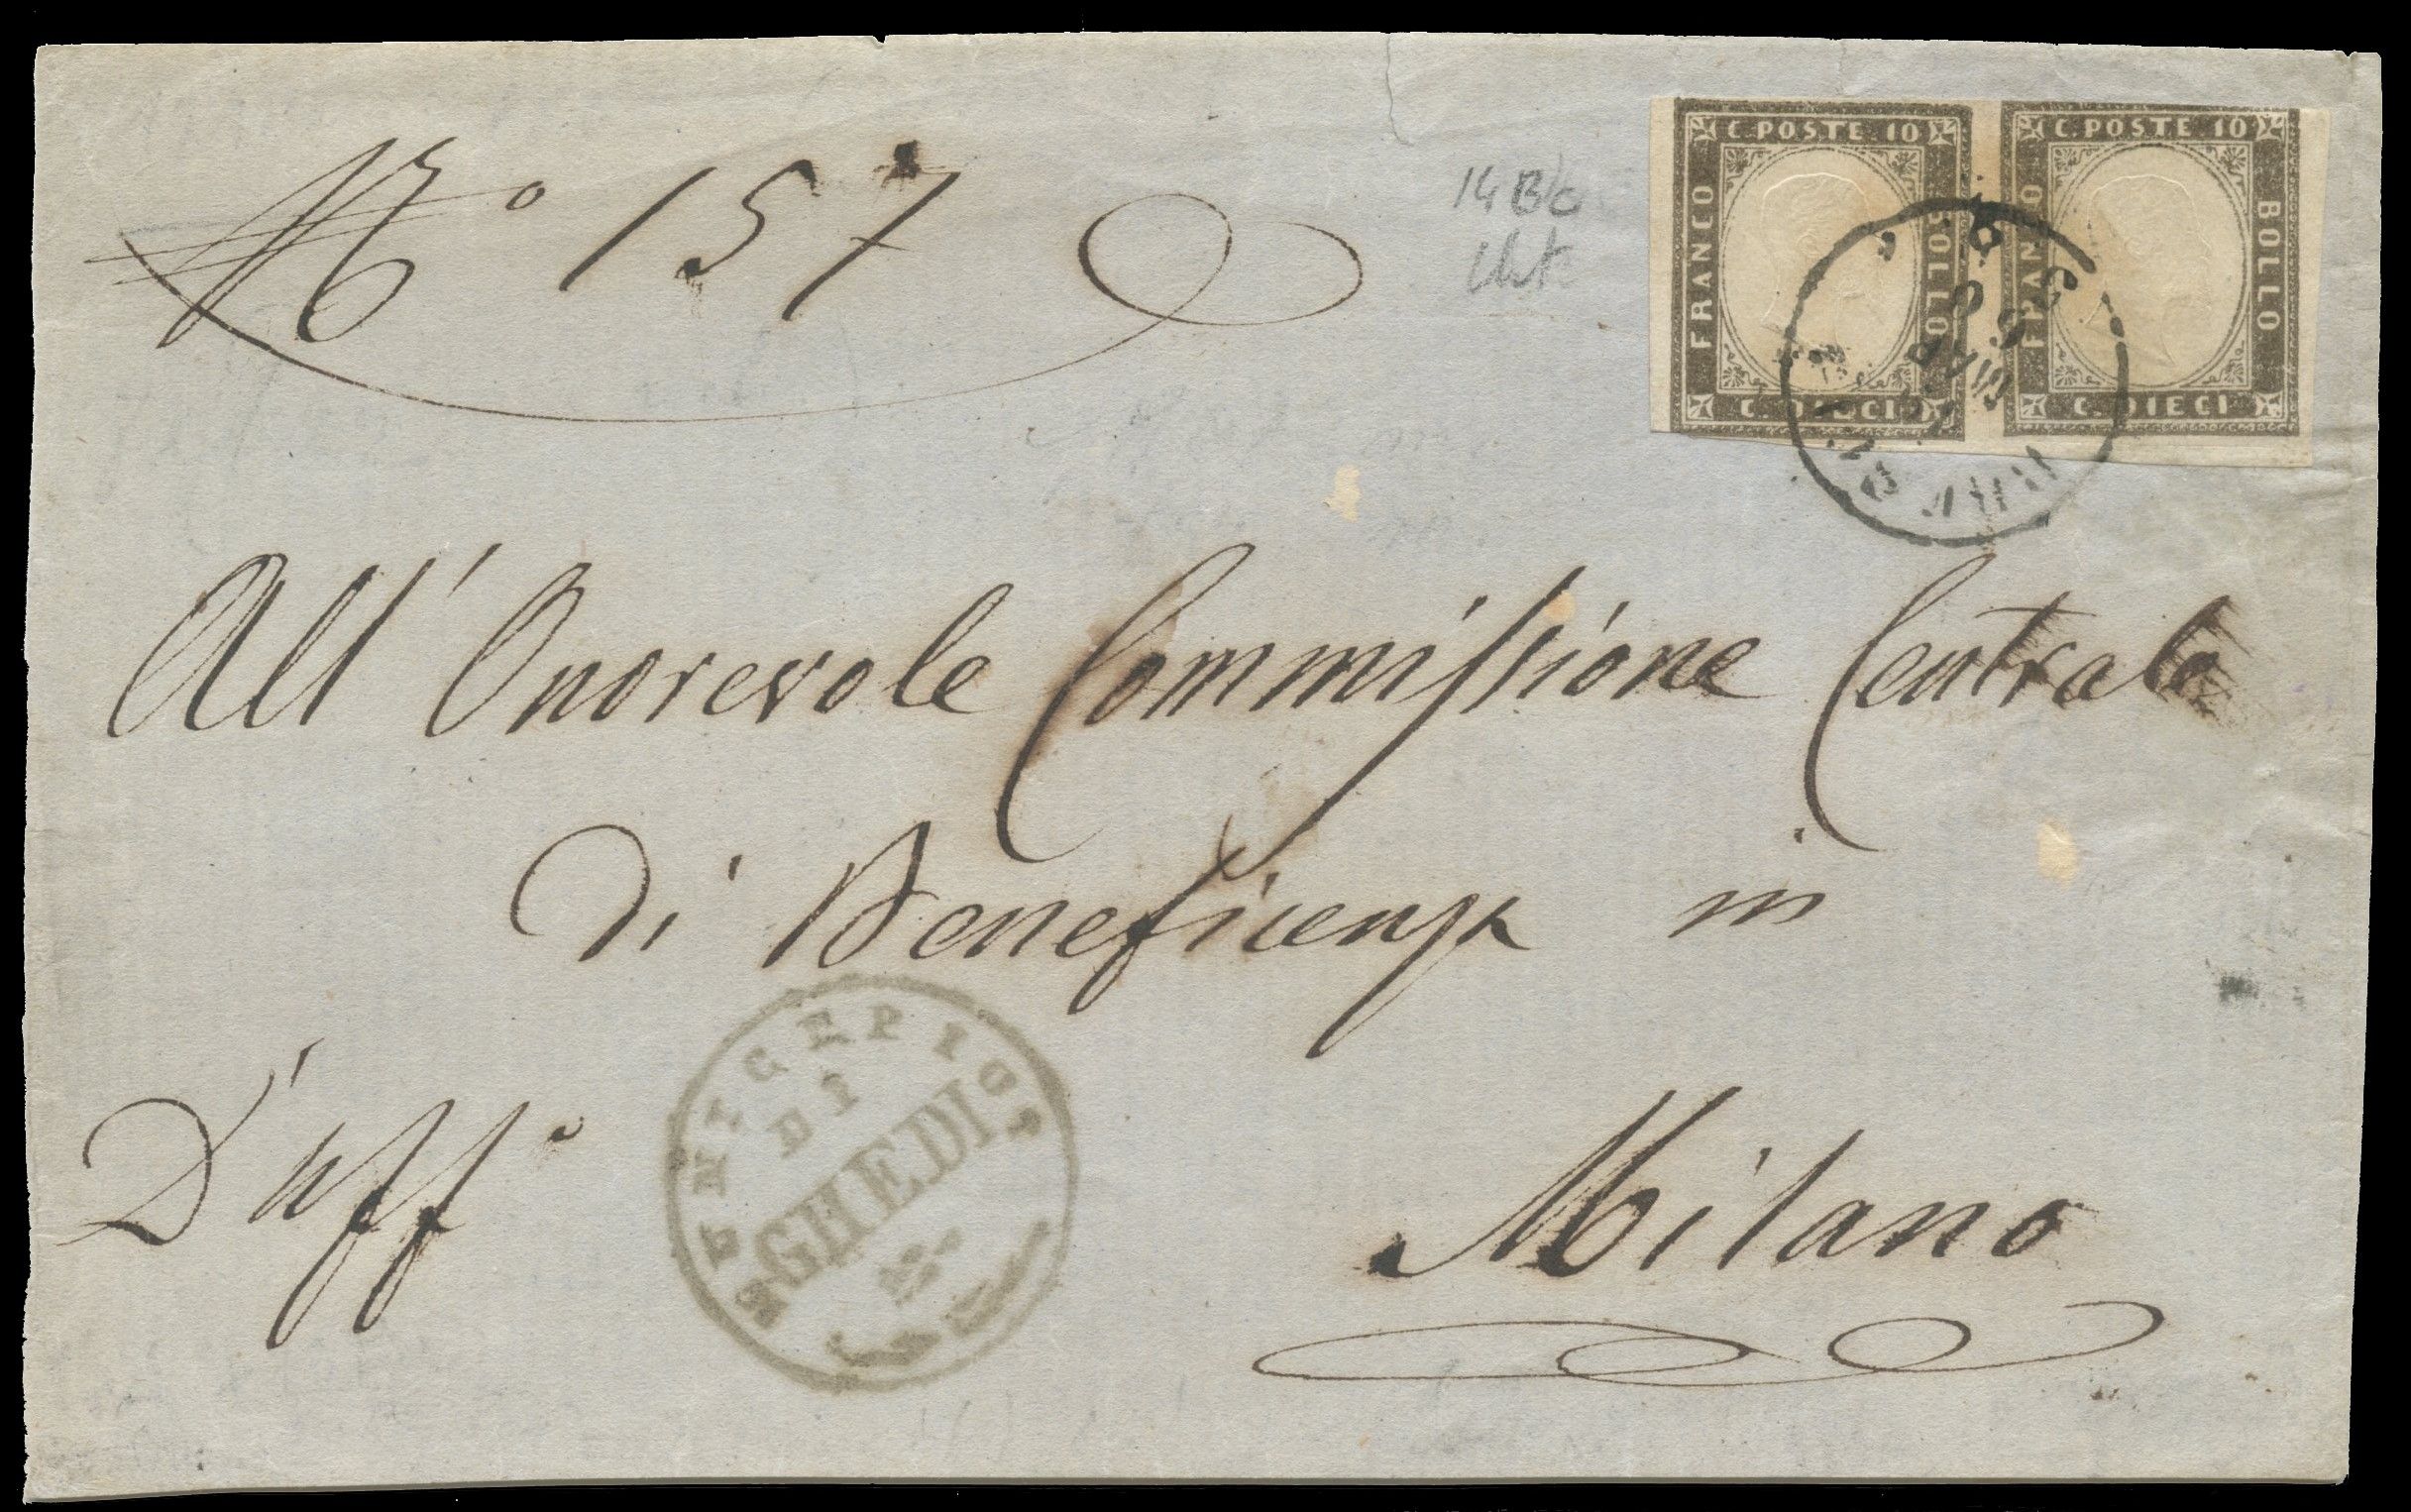 N.º 157
14 B/c
C. POSTE. 10
FRANCO
BOLLO
C. DIECI
C. POSTE 10
FRANCO
BOLLO
C. DIECI
All' Onorevole Commissione Centrale
di Beneficenza in
Milano
D'uff.º
DI
GHEDI